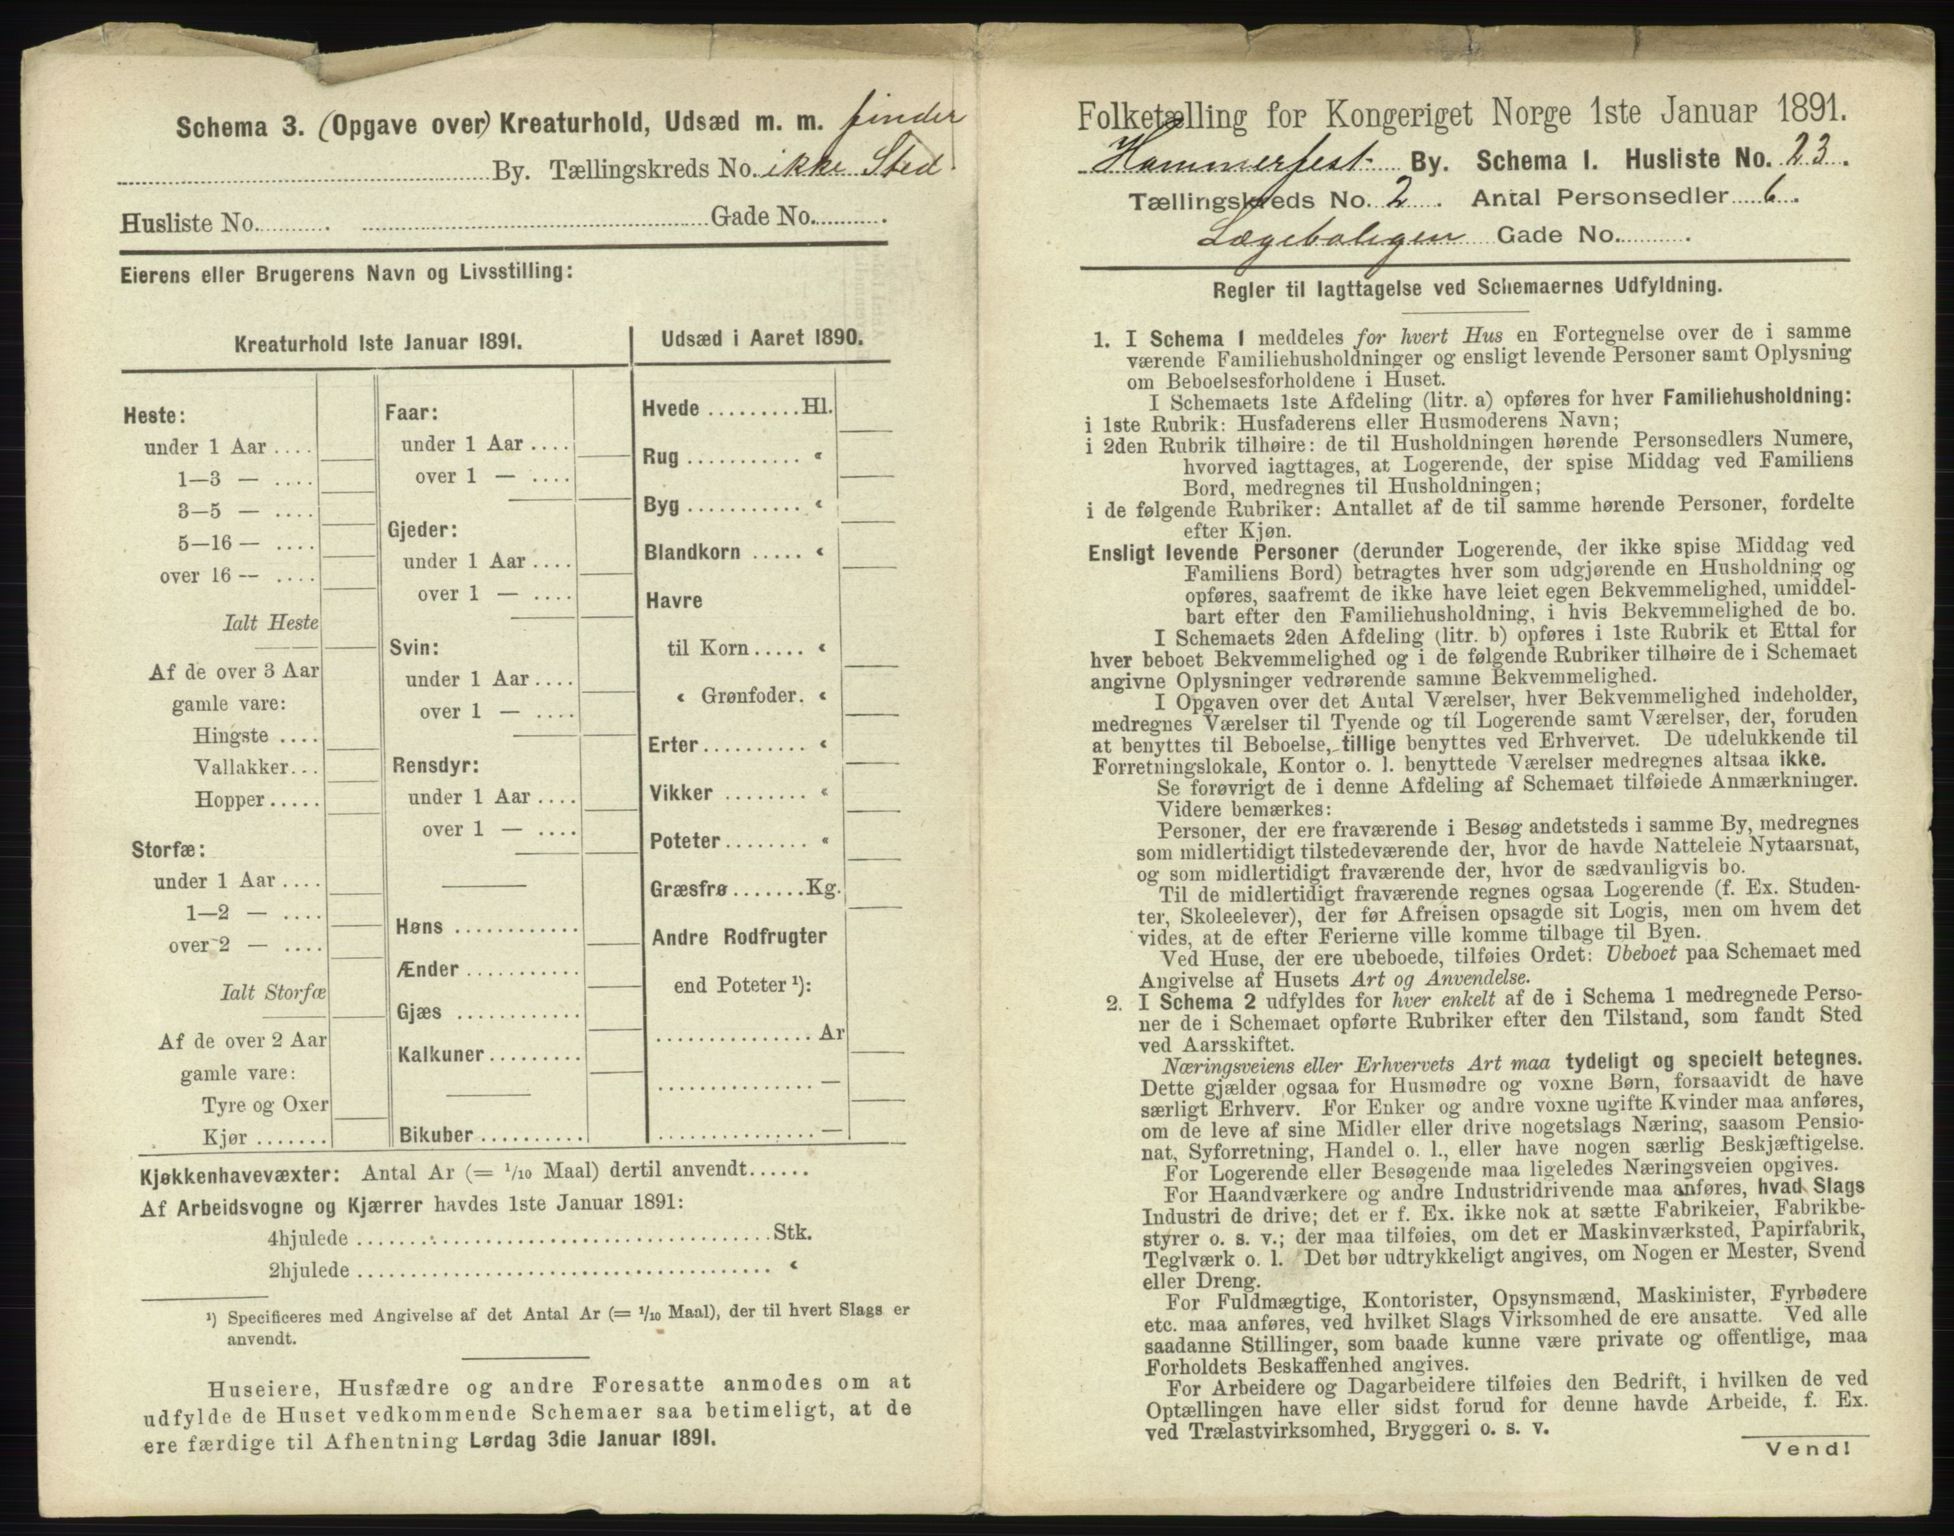 Schema 3. (Opgave over) Kreaturhold, Udsæd m. m. finder
By. Tællingskreds No. ikke Sted
Husliste No. Gade No.
Eierens eller Brugerens Navn og Livsstilling:
Kreaturhold 1ste Januar 1891.
Heste:
under 1 Aar ....
1—3 — ....
3—5 — ....
5—16 — ....
over 16 — ....
Ialt Heste
Af de over 3 Aar
gamle vare:
Hingste ....
Vallakker...
Hopper.....
Storfæ:
under 1 Aar ....
1—2 — ....
over 2 — ....
Ialt Storfæ
Af de over 2 Aar
gamle vare:
Tyre og Oxer
Kjør .......
Faar:
under 1 Aar ....
over 1 — ....
Gjeder:
under 1 Aar ....
over 1 — ....
Svin:
under 1 Aar ....
over 1 — ....
Rensdyr:
under 1 Aar ....
over 1 — ....
Høns ............
Ænder ...........
Gjæs ............
Kalkuner.........
Bikuber..........
Udsæd i Aaret 1890.
Hvede .........Hl.
Rug .......... «
Byg .......... «
Blandkorn ..... «
Havre
til Korn..... «
« Grønfoder. «
Erter.......... «
Vikker ........ «
Poteter........ «
Græsfrø .......Kg.
Andre Rodfrugter
end Poteter ¹):
...............Ar
...............—
...............—
Kjøkkenhavevæxter: Antal Ar (= 1/10 Maal) dertil anvendt......
Af Arbeidsvogne og Kjærrer havdes 1ste Januar 1891:
4hjulede ........................................Stk.
2hjulede ........................................ «
¹) Specificeres med Angivelse af det Antal Ar (= 1/10 Maal), der til hvert Slags er
anvendt.
Huseiere, Husfædre og andre Foresatte anmodes om at
udfylde de Huset vedkommende Schemaer saa betimeligt, at de
ere færdige til Afhentning Lørdag 3die Januar 1891.
Folketælling for Kongeriget Norge 1ste Januar 1891.
Hammerfest By. Schema 1. Husliste No. 23.
Tællingskreds No. 2. Antal Personsedler 6.
Lægeboligen Gade No.
Regler til Iagttagelse ved Schemaernes Udfyldning.
1. I Schema 1 meddeles for hvert Hus en Fortegnelse over de i samme
værende Familiehusholdninger og ensligt levende Personer samt Oplysning
om Beboelsesforholdene i Huset.
I Schemaets 1ste Afdeling (litr. a) opføres for hver Familiehusholdning:
i 1ste Rubrik: Husfaderens eller Husmoderens Navn;
i 2den Rubrik tilhøire: de til Husholdningen hørende Personsedlers Numere,
hvorved iagttages, at Logerende, der spise Middag ved Familiens
Bord, medregnes til Husholdningen;
i de følgende Rubriker: Antallet af de til samme hørende Personer, fordelte
efter Kjøn.
Ensligt levende Personer (derunder Logerende, der ikke spise Middag ved
Familiens Bord) betragtes hver som udgjørende en Husholdning og
opføres, saafremt de ikke have leiet egen Bekvemmelighed, umiddel-
bart efter den Familiehusholdning, i hvis Bekvemmelighed de bo.
I Schemaets 2den Afdeling (litr. b) opføres i 1ste Rubrik et Ettal for
hver beboet Bekvemmelighed og i de følgende Rubriker tilhøire de i Schemaet
angivne Oplysninger vedrørende samme Bekvemmelighed.
I Opgaven over det Antal Værelser, hver Bekvemmelighed indeholder,
medregnes Værelser til Tyende og til Logerende samt Værelser, der, foruden
at benyttes til Beboelse, tillige benyttes ved Erhvervet. De udelukkende til
Forretningslokale, Kontor o. l. benyttede Værelser medregnes altsaa ikke.
Se forøvrigt de i denne Afdeling af Schemaet tilføiede Anmærkninger.
Videre bemærkes:
Personer, der ere fraværende i Besøg andetsteds i samme By, medregnes
som midlertidigt tilstedeværende der, hvor de havde Natteleie Nytaarsnat,
og som midlertidigt fraværende der, hvor de sædvanligvis bo.
Til de midlertidigt fraværende regnes ogsaa Logerende (f. Ex. Studen-
ter, Skoleelever), der før Afreisen opsagde sit Logis, men om hvem det
vides, at de efter Ferierne ville komme tilbage til Byen.
Ved Huse, der ere ubeboede, tilføies Ordet: Ubeboet paa Schemaet med
Angivelse af Husets Art og Anvendelse.
2. I Schema 2 udfyldes for hver enkelt af de i Schema 1 medregnede Perso-
ner de i Schemaet opførte Rubriker efter den Tilstand, som fandt Sted
ved Aarsskiftet.
Næringsveiens eller Erhvervets Art maa tydeligt og specielt betegnes.
Dette gjælder ogsaa for Husmødre og voxne Børn, forsaavidt de have
særligt Erhverv. For Enker og andre voxne ugifte Kvinder maa anføres,
om de leve af sine Midler eller drive nogetslags Næring, saasom Pensio-
nat, Syforretning, Handel o. l., eller have nogen særlig Beskjæftigelse.
For Logerende eller Besøgende maa ligeledes Næringsveien opgives.
For Haandværkere og andre Industridrivende maa anføres, hvad Slags
Industri de drive; det er f. Ex. ikke nok at sætte Fabrikeier, Fabrikbe-
styrer o. s. v.; der maa tilføies, om det er Maskinværksted, Papirfabrik,
Teglværk o. l. Det bør udtrykkeligt angives, om Nogen er Mester, Svend
eller Dreng.
For Fuldmægtige, Kontorister, Opsynsmænd, Maskinister, Fyrbødere
etc. maa anføres, ved hvilket Slags Virksomhed de ere ansatte. Ved alle
saadanne Stillinger, som baade kunne være private og offentlige, maa
Forholdets Beskaffenhed angives.
For Arbeidere og Dagarbeidere tilføies den Bedrift, i hvilken de ved
Optællingen have eller sidst forud for denne havde Arbeide, f. Ex.
ved Trælastvirksomhed, Bryggeri o. s. v.
Vend!